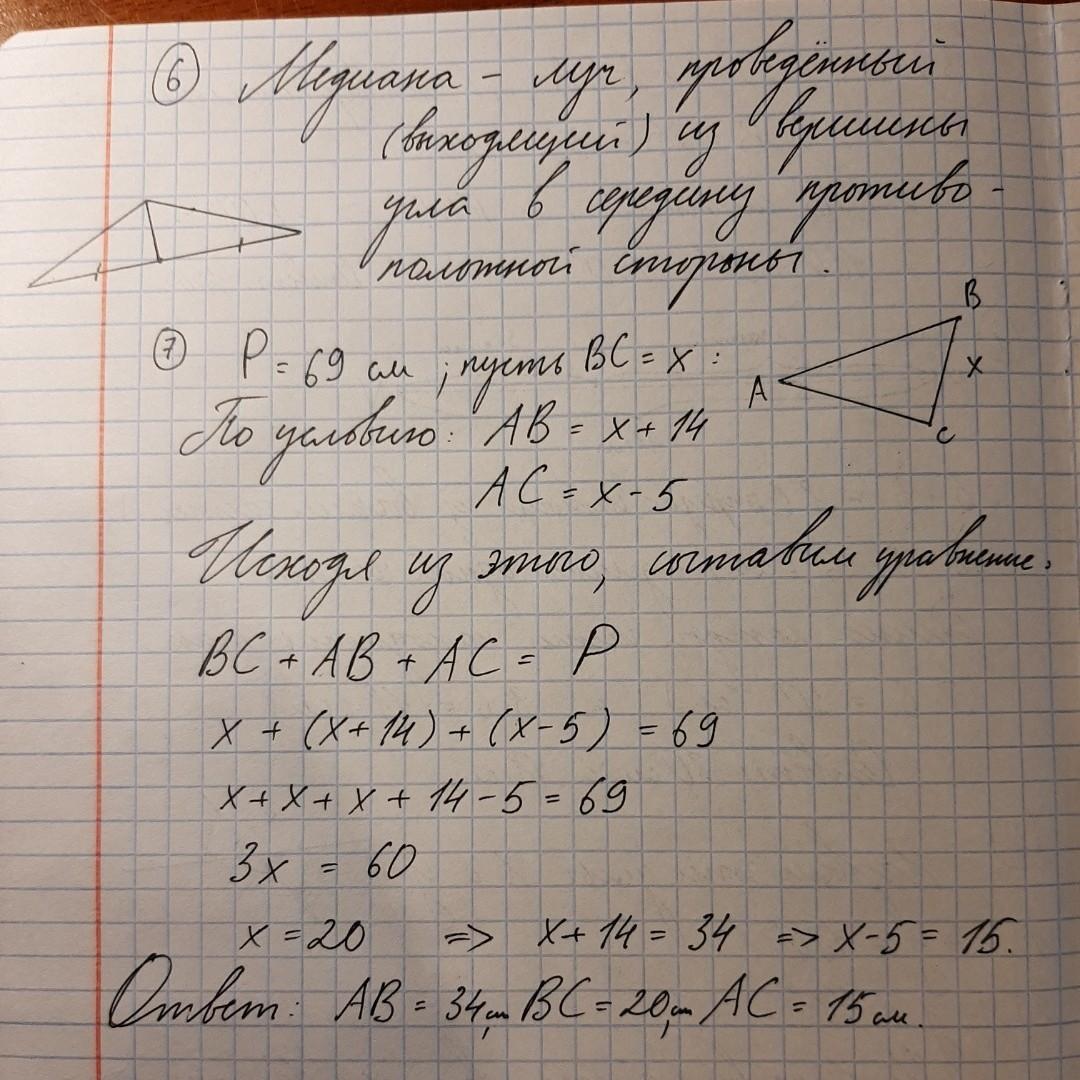 6 Медиана - луч, проведённый
(выходящий) из вершины
угла в середину противо-
положной стороны.
7 P = 69 см ; пусть BC = x :
По условию: AB = x + 14
AC = x - 5
B
A
x
C
Исходя из этого, составим уравнение:
BC + AB + AC = P
x + (x + 14) + (x - 5) = 69
x + x + x + 14 - 5 = 69
3x = 60
x = 20 => x + 14 = 34 => x - 5 = 15.
Ответ: AB = 34 см, BC = 20 см, AC = 15 см.